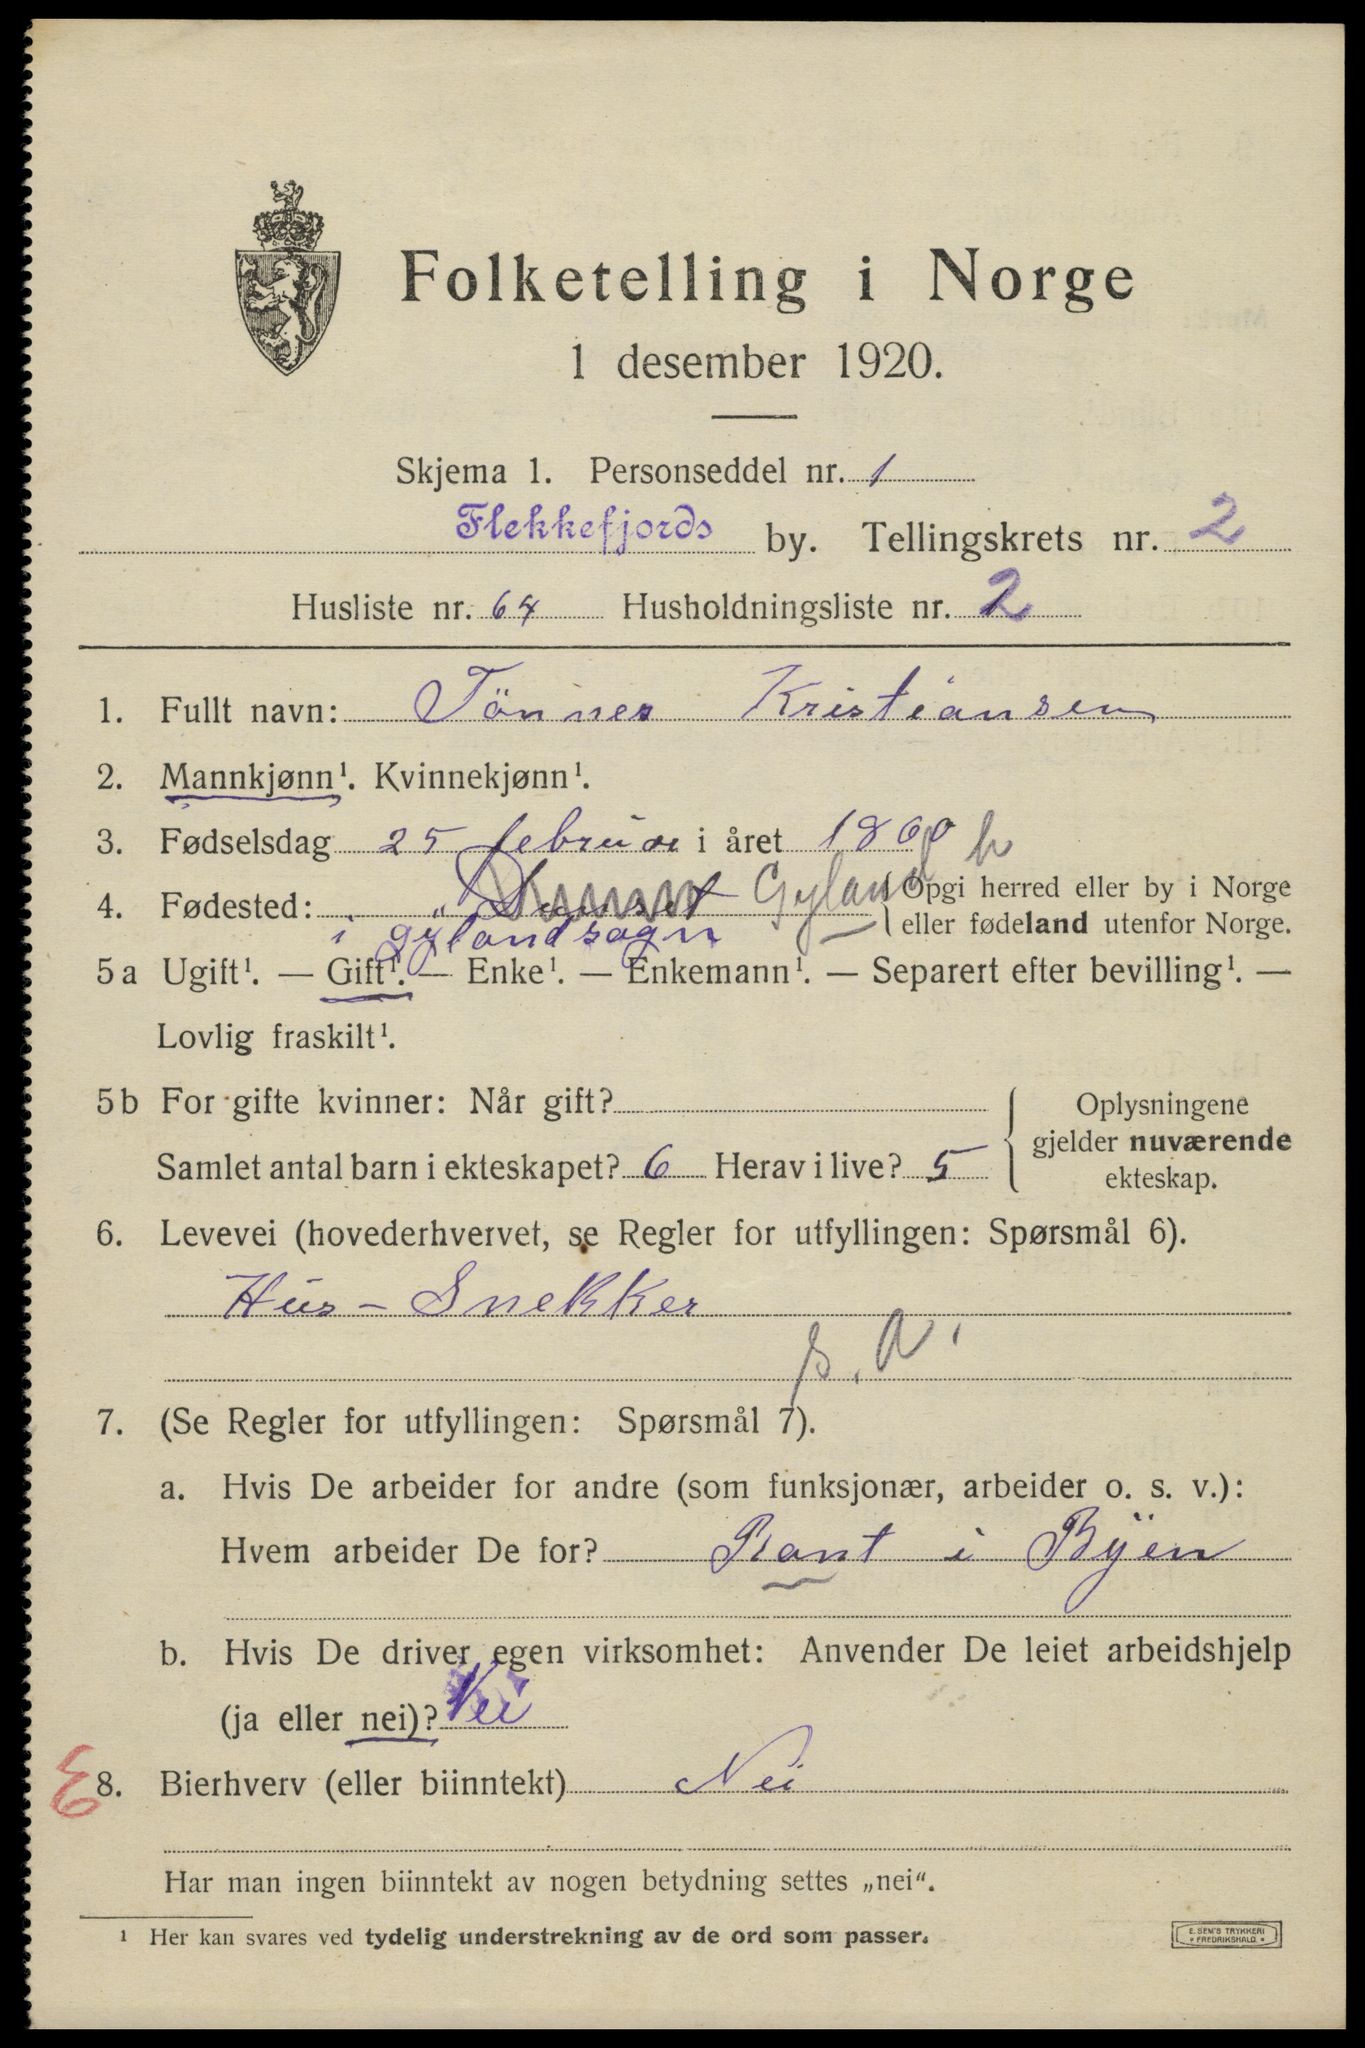 Folketelling i Norge
1 desember 1920.
Skjema 1. Personseddel nr. 1
Flekkefjords by. Tellingskrets nr. 2
Husliste nr. 64 Husholdningsliste nr. 2
1. Fullt navn: Tönnes Kristiansen
2. Mannkjønn¹. Kvinnekjønn¹.
3. Fødselsdag 25 februar i året 1860 h
4. Fødested: Gyland {Opgi herred eller by i Norge
eller fødeland utenfor Norge.
i gylandsogn
5a Ugift¹. — Gift¹. — Enke¹. — Enkemann¹. — Separert efter bevilling¹. —
Lovlig fraskilt¹.
5b For gifte kvinner: Når gift?
Samlet antal barn i ekteskapet? 6 Herav i live? 5
Oplysningene
gjelder nuværende
ekteskap.
6. Levevei (hovederhvervet, se Regler for utfyllingen: Spørsmål 6).
Hus - Snekker
7. (Se Regler for utfyllingen: Spørsmål 7).
a. Hvis De arbeider for andre (som funksjonær, arbeider o. s. v.):
Hvem arbeider De for? Rant i Byen
b. Hvis De driver egen virksomhet: Anvender De leiet arbeidshjelp
(ja eller nei)? Nei
8. Bierhverv (eller biinntekt) Nei
Har man ingen biinntekt av nogen betydning settes „nei“.
¹ Her kan svares ved tydelig understrekning av de ord som passer.
E. SEM'S TRYKKERI
* FREDRIKSHALD. *